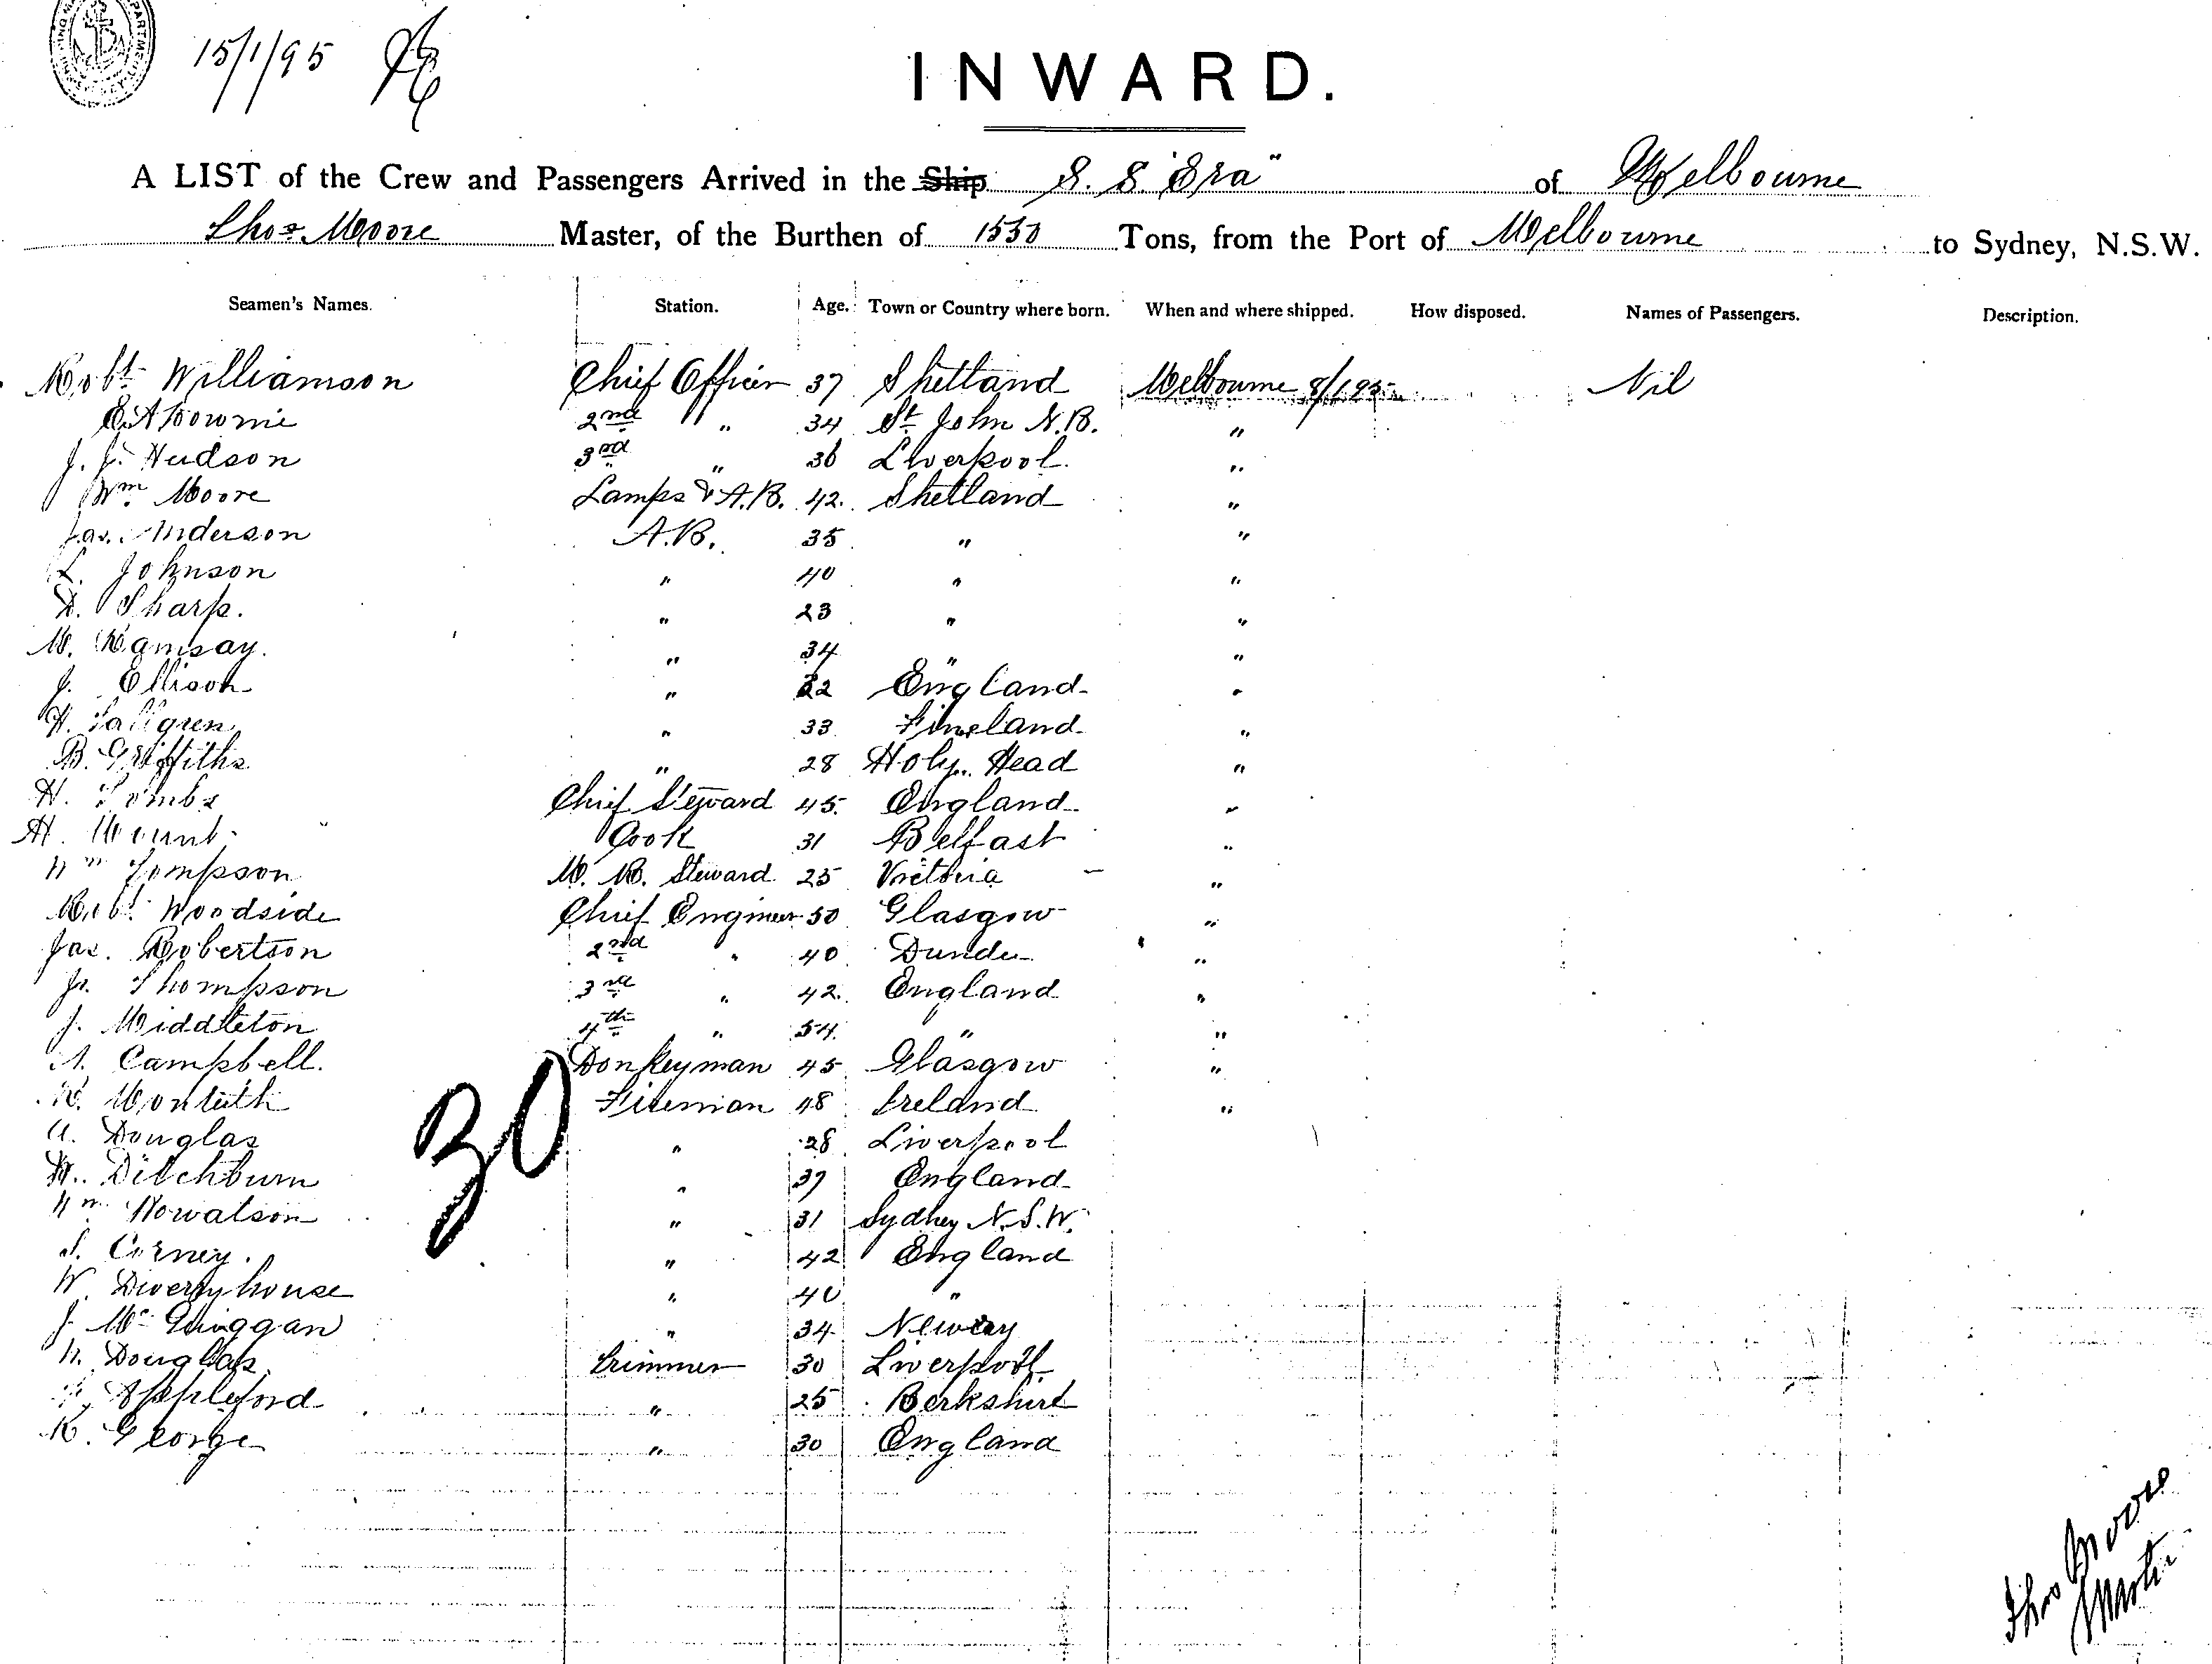 15/1/95
INWARD.
A LIST of the Crew and Passengers Arrived in the Ship S. S. "Era" of Melbourne
Thos Moore Master, of the Burthen of 1550 Tons, from the Port of Melbourne to Sydney, N.S.W.
Seamen's Names. Station. Age. Town or Country where born. When and where shipped. How disposed. Names of Passengers. Description.
Robt Williamson Chief Officer 37 Shetland Melbourne 8/1/95 Nil
2nd " 34 St John N.B. "
J. J. Hudson 3rd " 36 Liverpool. "
Wm Moore Lamps & A.B. 42. Shetland "
Jas. Anderson A.B. 35 " "
L. Johnson " 40 " "
D. Sharp. " 23 " "
W. Ramsay. " 34 " "
J. Ellison " 22 England "
H. " 33 Fineland "
B. Griffiths " 28 Holy Head "
H. Tombs Chief Steward 45. England "
H. Mount Cook 31 Belfast "
Wm Tompson M. R. Steward 25 Victoria "
Robt Woodside Chief Engineer 50 Glasgow "
Jas. Robertson 2nd " 40 Dundee "
Js. Thompson 3rd " 42. England "
J. Middleton 4th " 54. " "
A. Campbell. Donkeyman 45 Glasgow "
R. Monteith Fireman 48 Ireland "
A. Douglas " 28 Liverpool
W. Ditchburn " 37 England
Wm Mowatson " 31 Sydney N.S.W.
S. Corney. " 42 England
W. Diveryhouse " 40 "
J. McGuiggan " 34 Newry
W. Douglas Trimmer 30 Liverpool
Appleford " 25 Berkshire
R. George " 30 England
30
Thos Moore
Master